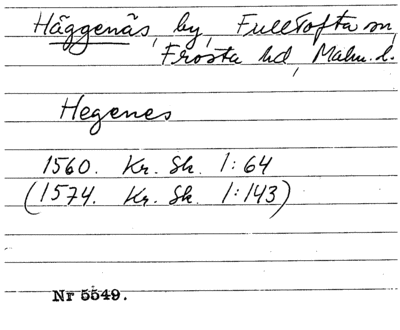 Häggenäs, by, Fulltofta sn,
Frosta hd, Malm. l.
Hegenes
1560. Kr. Sk. 1:64
(1574. Kr. Sk. 1:143)
Nr 5549.